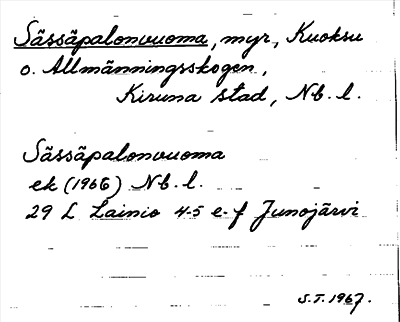 Sässäpalonvuoma, myr, Kuoksu
o. Allmänningsskogen,
Kiruna stad, Nb. l.
Sässäpalonvuoma
ek (1966) Nb. l.
29 L Lainio 4-5 e-f Junojärvi
S.T. 1967.